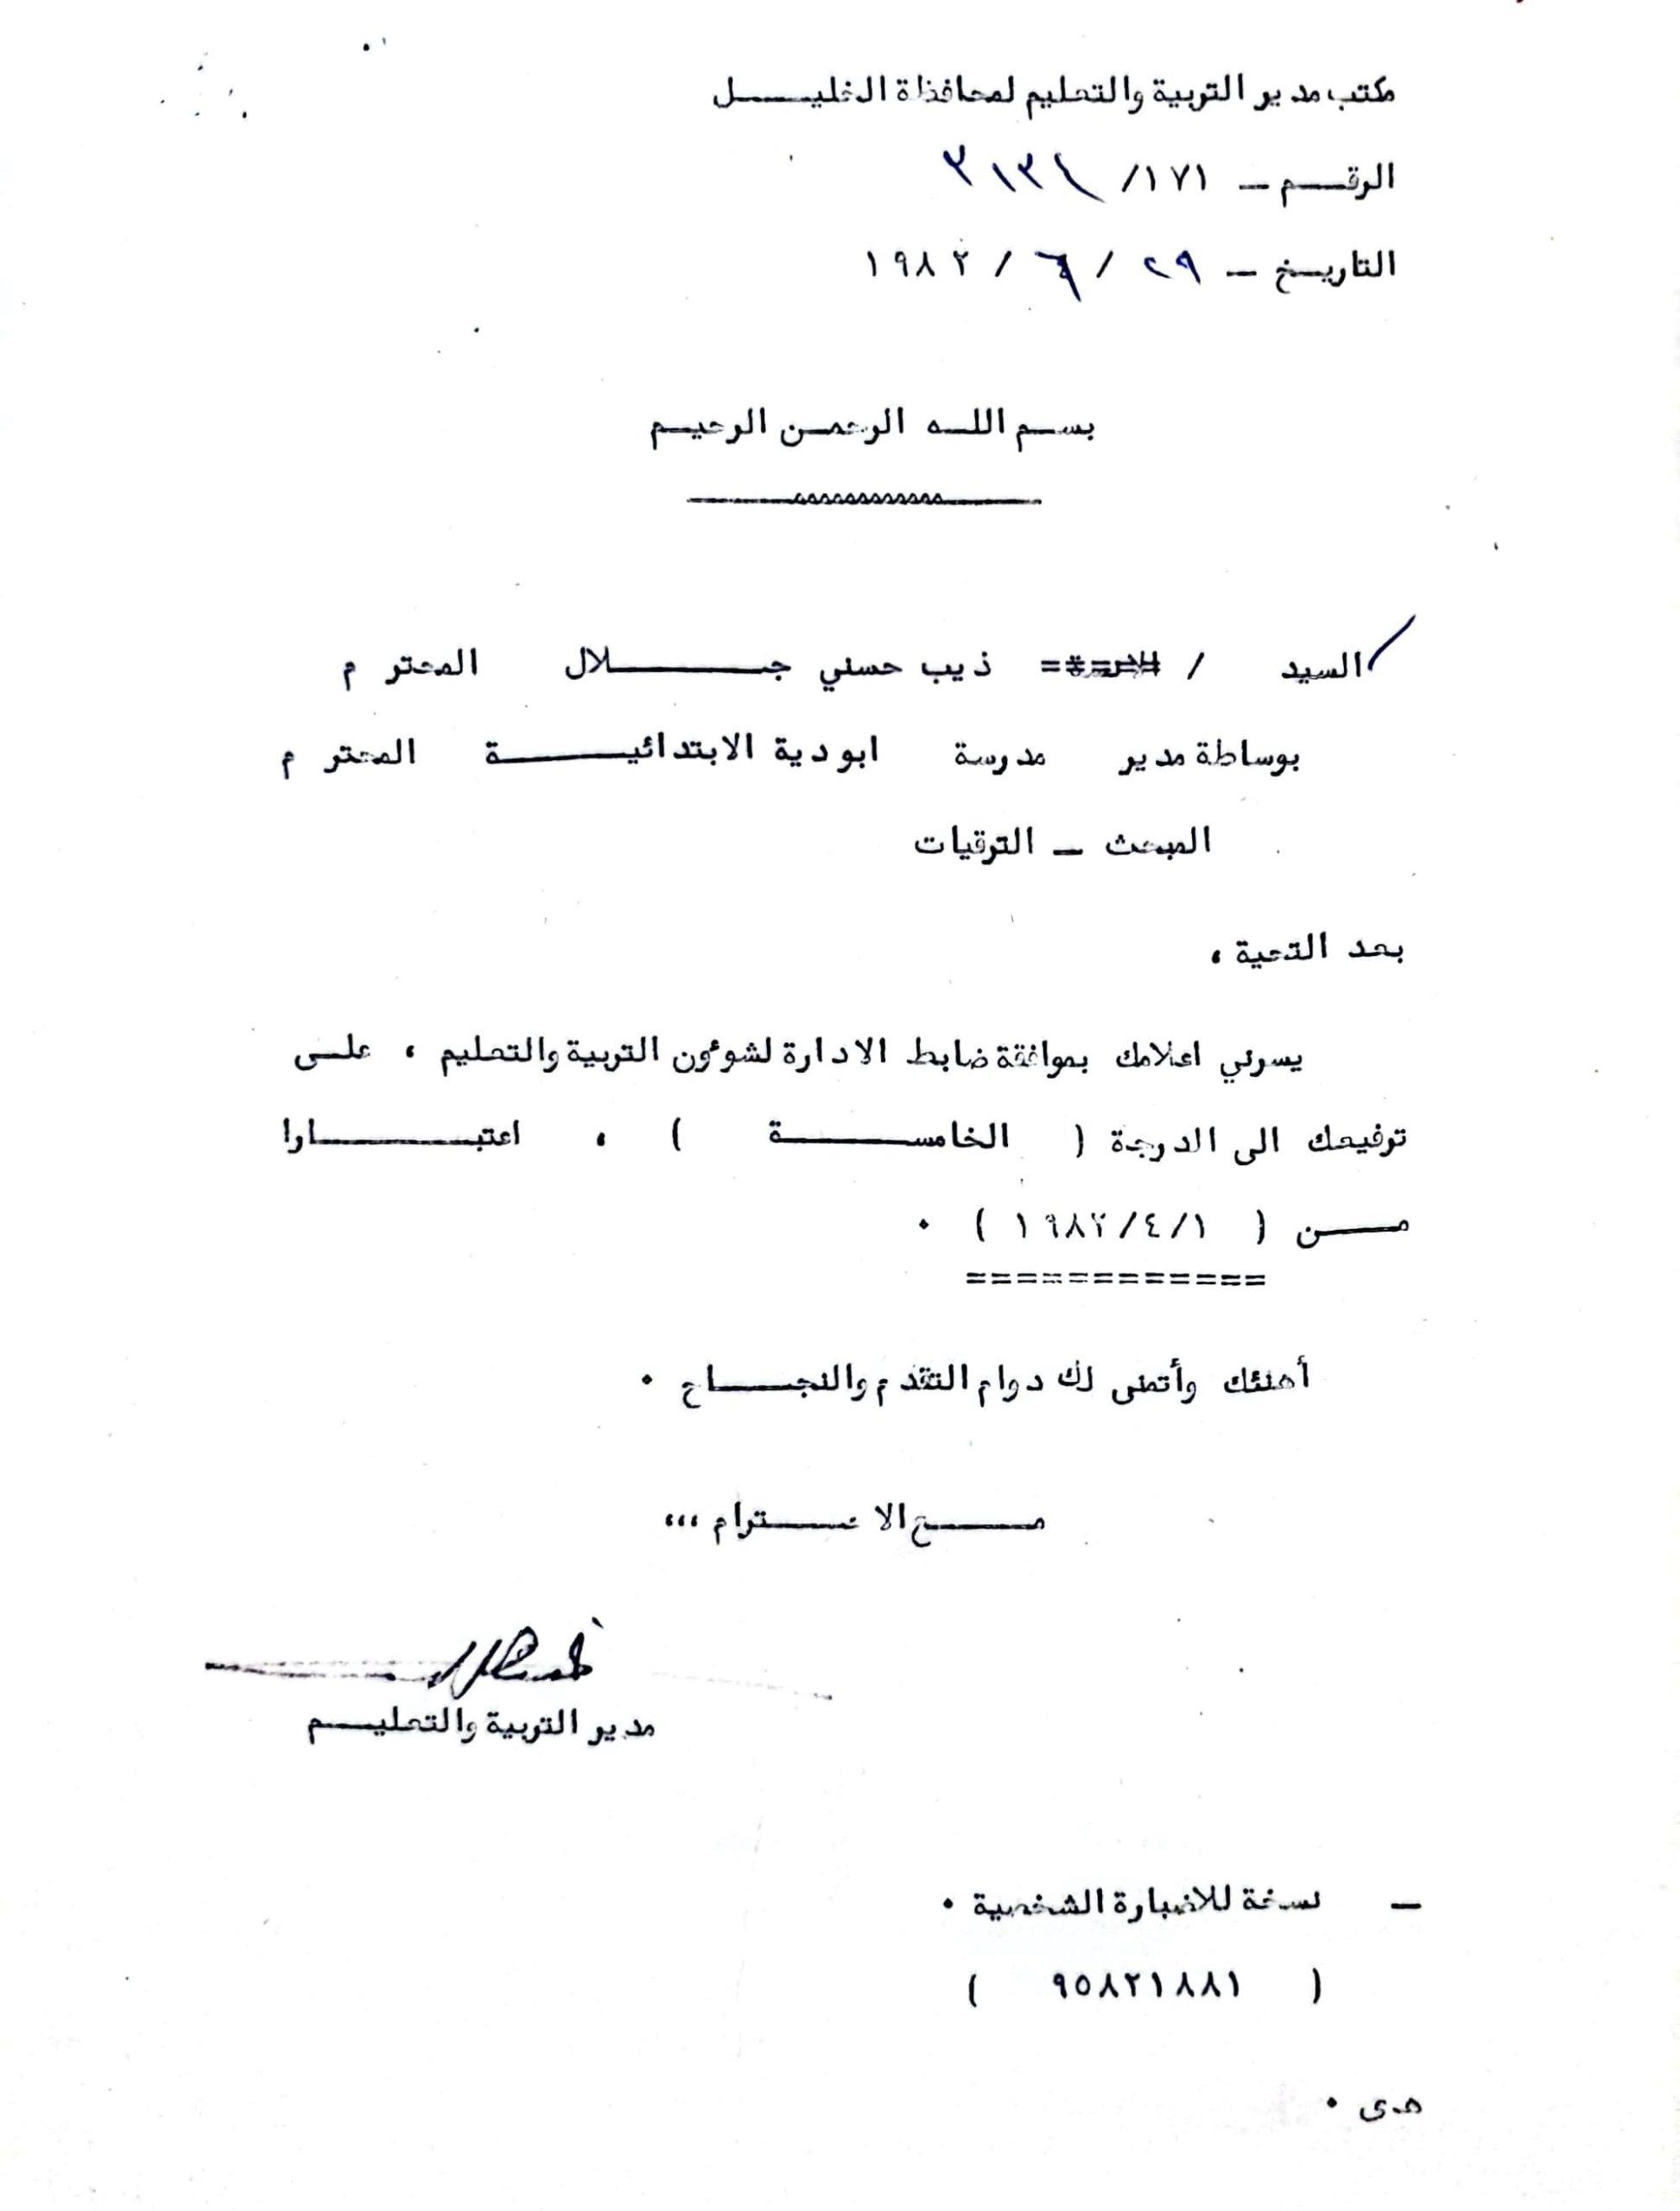 مكتب مدير التربية والتعليم لمحافظة الخليل
الرقم - ١٧١/
التاريخ - ٢٩ / ٦ / ١٩٨٢
بسم الله الرحمن الرحيم
السيد / ذيب حسني جلال المحترم
بوساطة مدير مدرسة ابودية الابتدائية المحترم
المبحث - الترقيات
بعد التحية ،
يسرني اعلامك بموافقة ضابط الادارة لشوءون التربية والتعليم ، على
ترفيعك الى الدرجة ( الخامسة ) ، اعتبارا
من ( ١٩٨٢/٤/١ ) ٠
============
أهنئك وأتمنى لك دوام التقدم والنجاح ٠
مع الاحترام ،،،
مدير التربية والتعليم
- نسخة للاضبارة الشخصية ٠
( ٩٥٨٢١٨٨١ )
هدى ٠